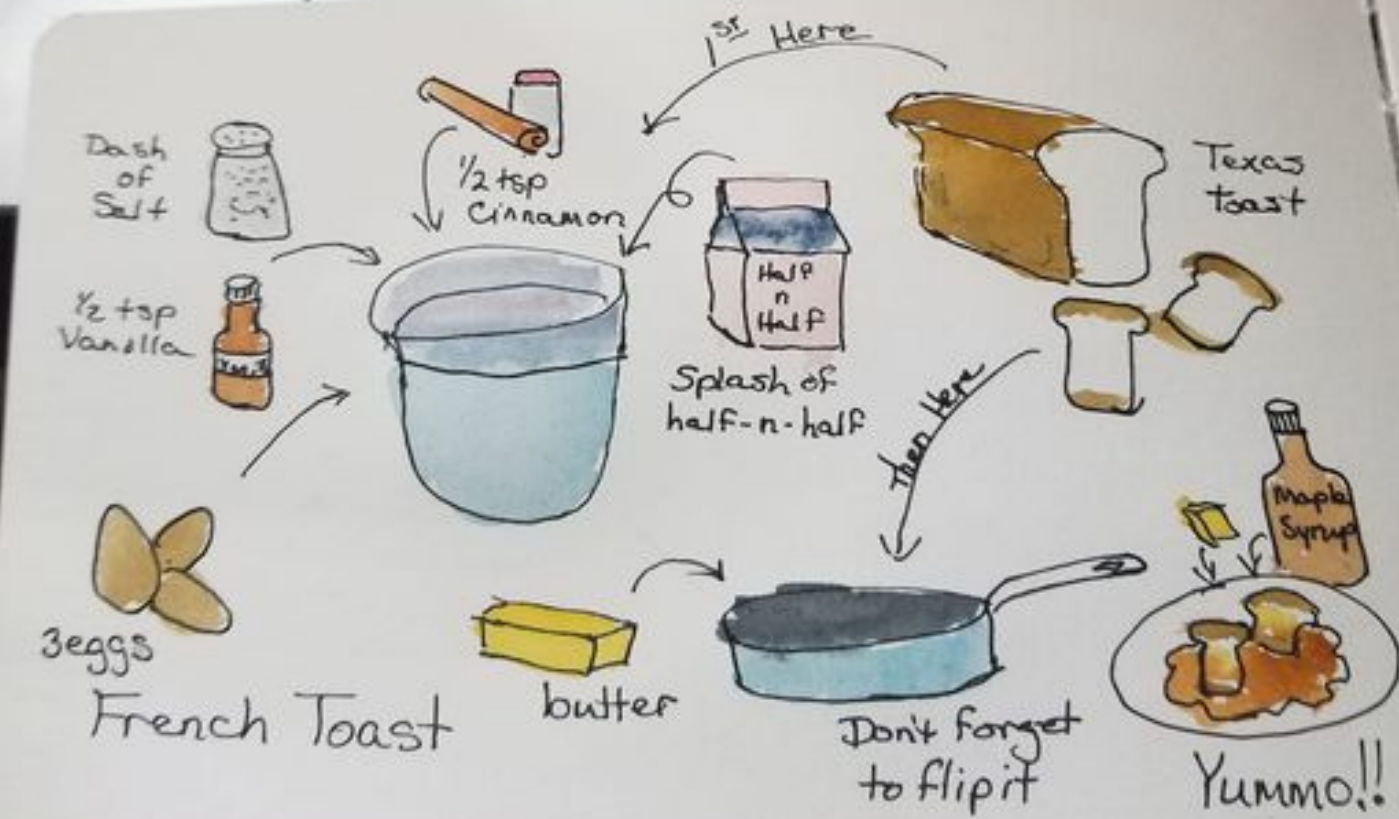 1st Here
Dash
of
Salt
1/2 tsp
Cinnamon
Texas
toast
1/2 tsp
Vanilla
Half
n
Half
Splash of
half-n-half
Then Here
Maple
Syrup
3eggs
French Toast
butter
Don't forget
to flip it
Yummo!!